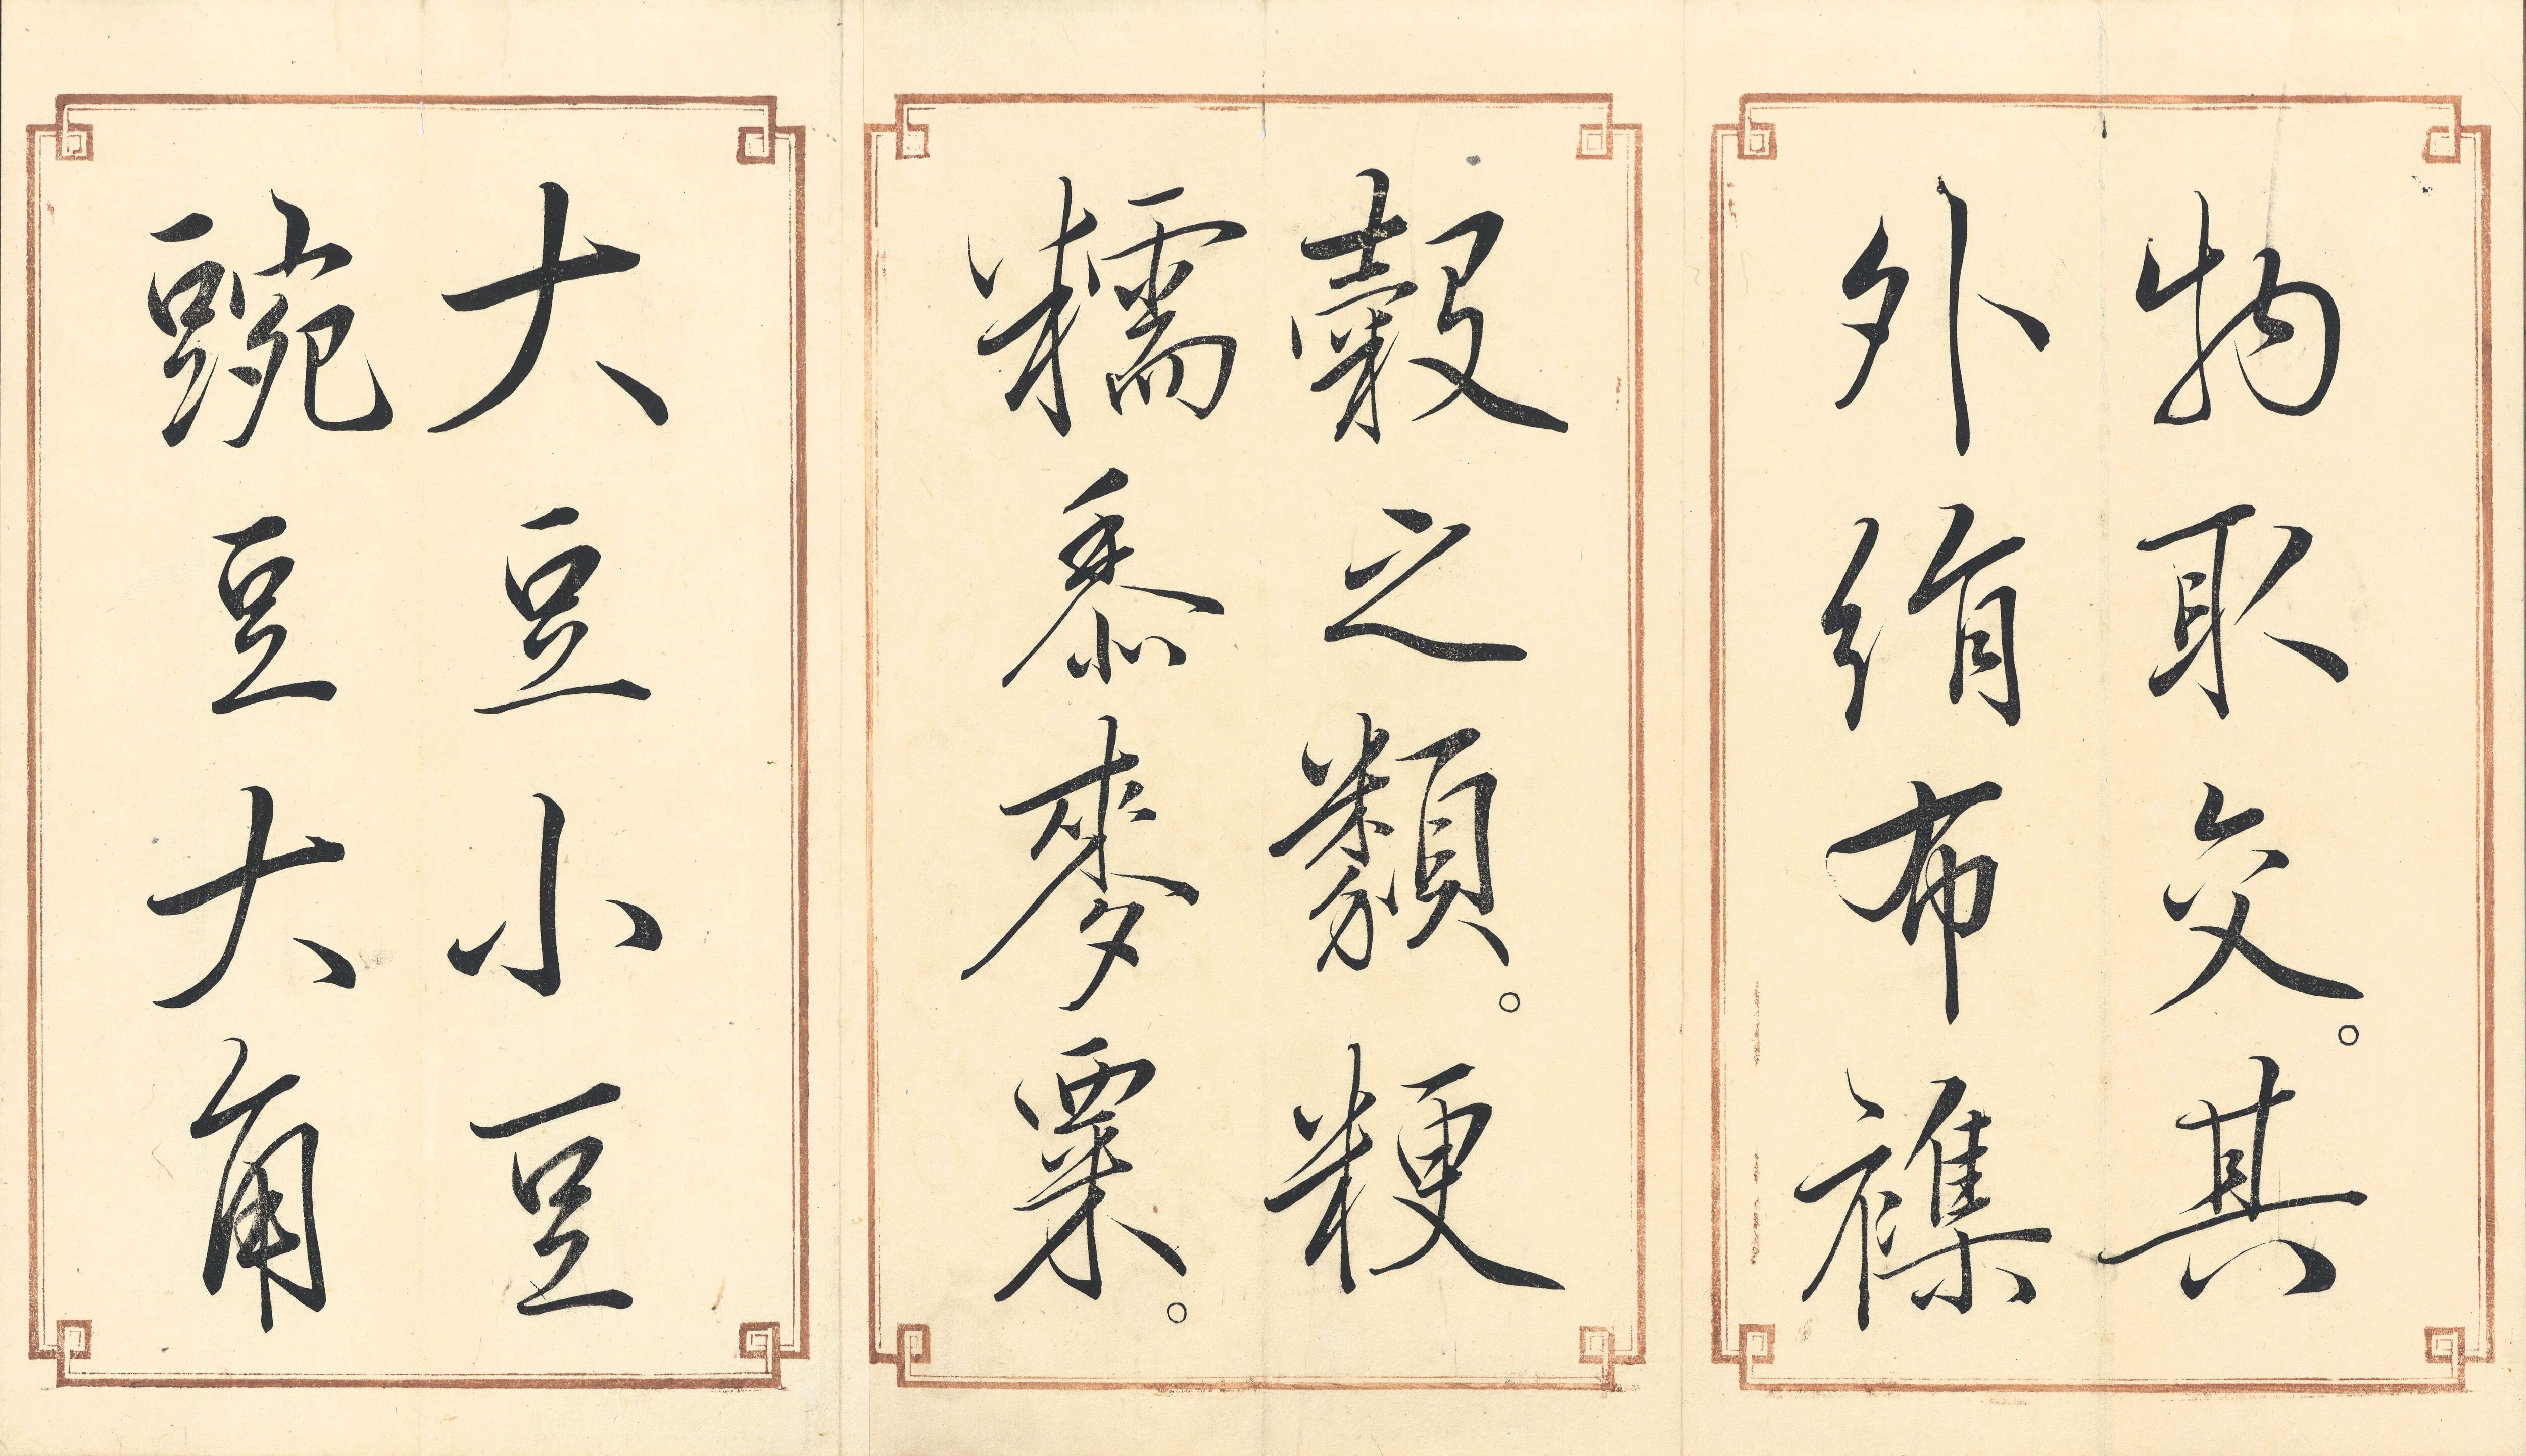 物取交。其
外絹布襍
糓之類。粳
糯黍麥粟。
大豆小豆
豌豆大角